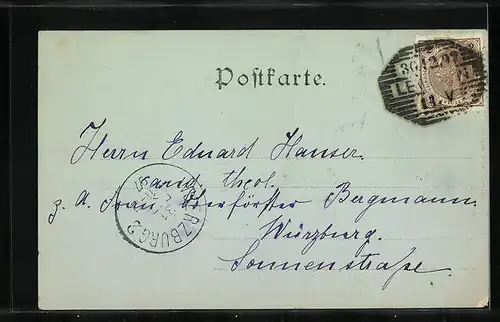 Postkarte.
30.12.97
Herrn Eduard Hauser
cand. theol.
z. A. Frau Oberförster Bergmann
Würzburg.
Sonnenstraße.
WÜRZBURG 2